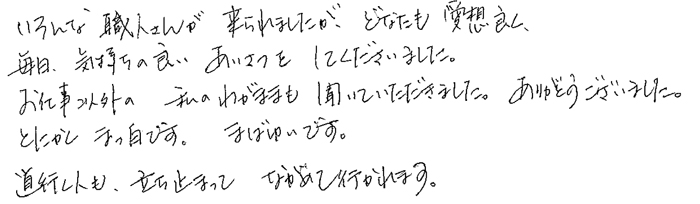 いろんな職人さんが来られましたが、どなたも愛想良く、
毎日、気持ちの良いあいさつをしてくださいました。
お仕事以外の私のわがままも聞いていただきました。ありがとうございました。
とにかくまっ白です。まばゆいです。
道行く人も、立ち止まってながめて行かれます。